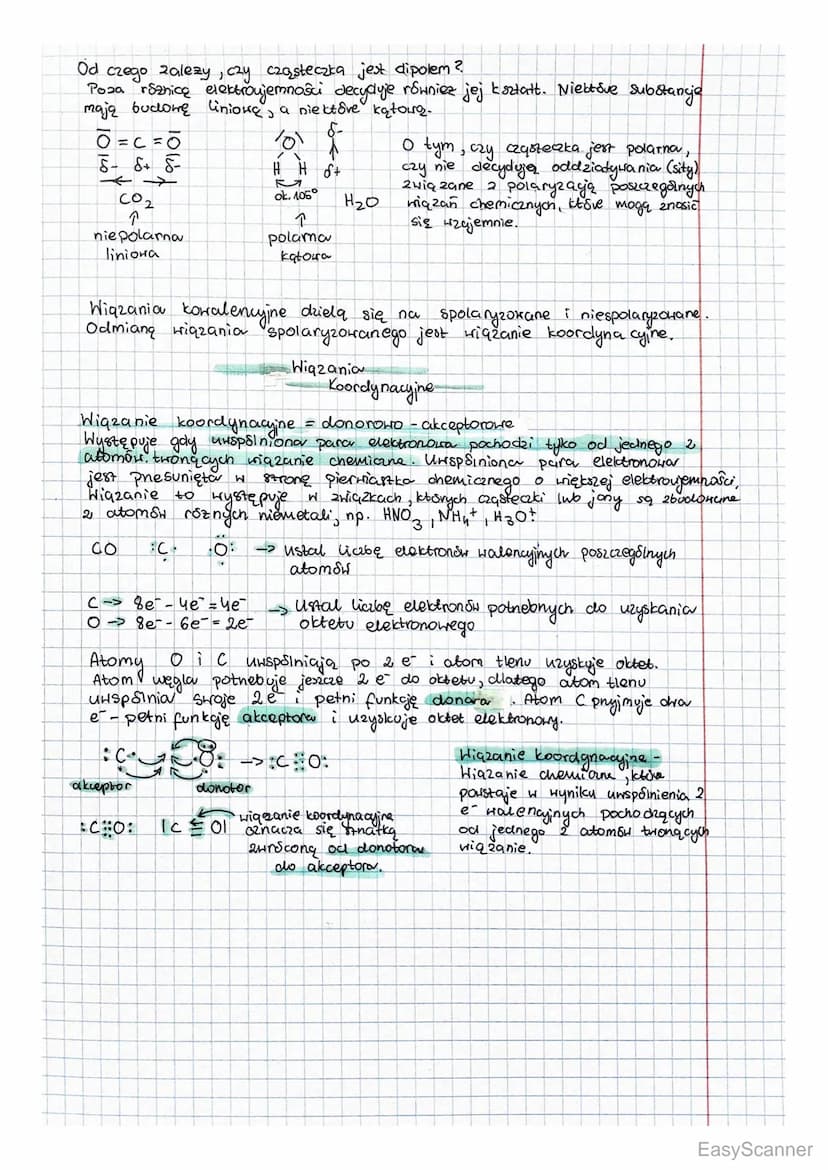 Od czego zależy, czy cząsteczka jest dipolem?
Poza różnicą elektroujemności decyduje również jej kształt. Niektóre substancje
mają budowę liniową, a niektóre kątową.
O = C = O
δ- δ+ δ-
CO₂
↑
niepolarna
liniowa
O
H H
δ-
δ+
ok. 105°
H₂O
↑
polarna
kątowa
O tym, czy cząsteczka jest polarna,
czy nie decydują oddziaływania (siły)
związane z polaryzacją poszczególnych
wiązań chemicznych, które mogą znosić
się wzajemnie.
Wiązania kowalencyjne dzielą się na spolaryzowane i niespolaryzowane.
Odmianą wiązania spolaryzowanego jest wiązanie koordynacyjne.
Wiązania
Koordynacyjne
Wiązanie koordynacyjne = donorowo - akceptorowe
Występuje gdy uwspólniona para elektronowa pochodzi tylko od jednego z
atomów tworzących wiązanie chemiczne. Uwspólniona para elektronowa
jest przesunięta w stronę pierwiastka chemicznego o większej elektroujemności,
Wiązanie to występuje w związkach, których cząsteczki lub jony są zbudowane
z atomów różnych niemetali, np. HNO₃, NH₄⁺, H₃O⁺.
CO :C· ·Ö: -> ustal liczbę elektronów walencyjnych poszczególnych
atomów
C -> 8e⁻ - 4e⁻ = 4e⁻ -> ustal liczbę elektronów potrzebnych do uzyskania
O -> 8e⁻ - 6e⁻ = 2e⁻ oktetu elektronowego
Atomy O i C uwspólniają po 2 e⁻ i atom tlenu uzyskuje oktet.
Atom węgla potrzebuje jeszcze 2 e⁻ do oktetu, dlatego atom tlenu
uwspólnia swoje 2e⁻ i pełni funkcję donora. Atom C przyjmuje dwa
e⁻ - pełni funkcję akceptora i uzyskuje oktet elektronowy.
:C· ·O: -> :C⫶⫶O:
akceptor donotor
:C⫶⫶O: |C ≡ O|
wiązanie koordynacyjne
oznacza się strzałką
zwróconą od donotora
do akceptora.
Wiązanie koordynacyjne -
Wiązanie chemiczne, które
powstaje w wyniku uwspólnienia 2
e⁻ walencyjnych pochodzących
od jednego z atomów tworzących
wiązanie.
EasyScanner